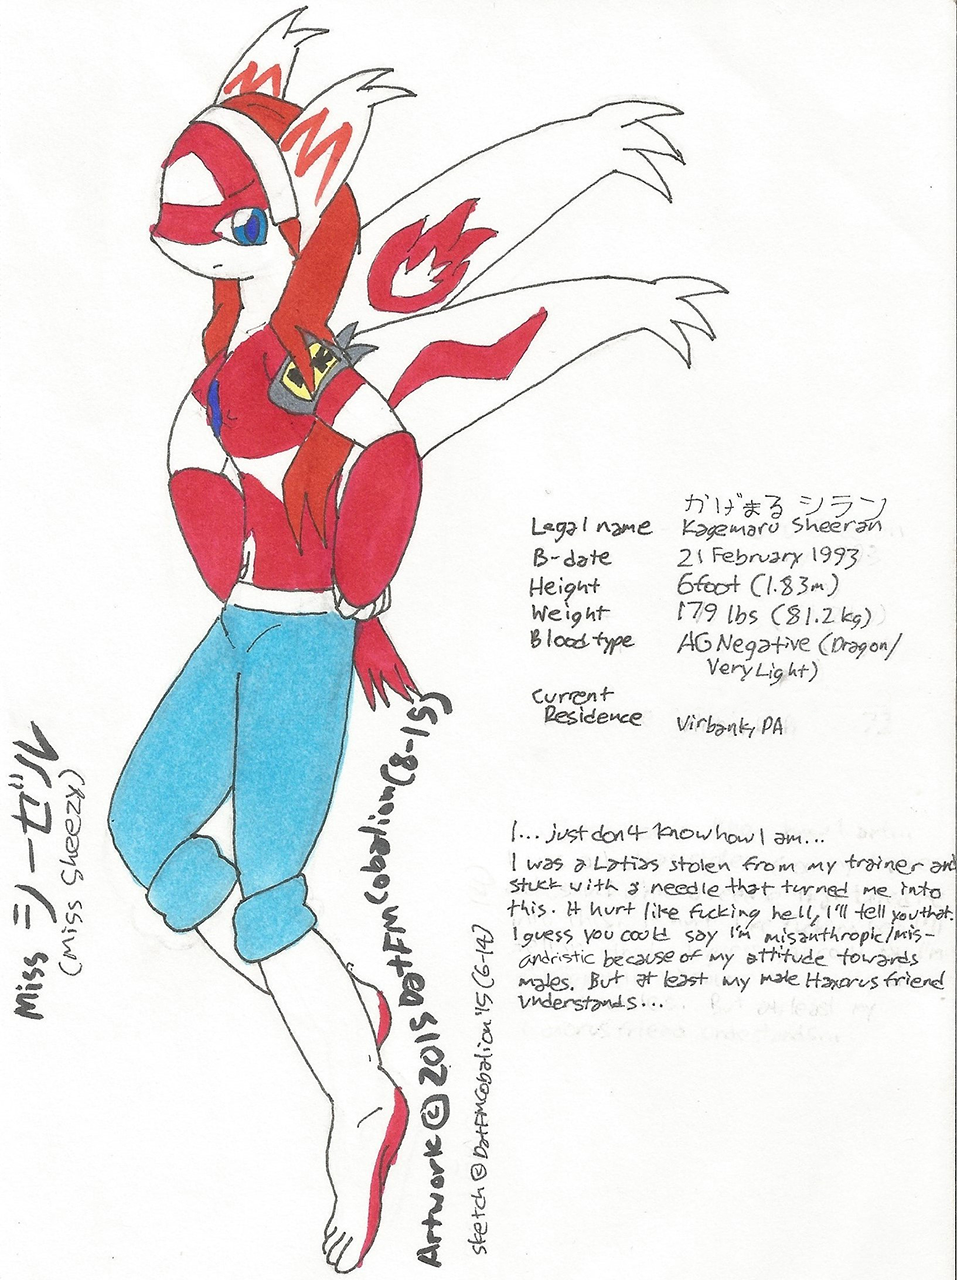 かげまる シラン
Legal name Kagemaru Sheeran
B-date 21 February 1993
Height 6foot (1.83m)
Weight 179 lbs (81.2kg)
Blood type AG Negative (Dragon/
Very Light)
Current
Residence Virbank, PA
I... just don't know how I am...
I was a Latias stolen from my trainer and
stuck with a needle that turned me into
this. It hurt like fucking hell, I'll tell you that.
I guess you could say I'm misanthropic/mis-
andristic because of my attitude towards
males. But at least my male Haxorus friend
understands...
Miss シーゼル
(Miss Sheezy)
Artwork © 2015 DatFMCobalion (8-15)
sketch © DatFMCobalion '15 (6-14)